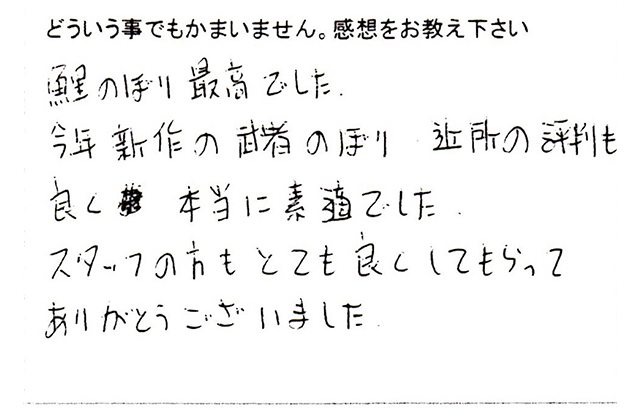 どういう事でもかまいません。感想をお教え下さい
鯉のぼり最高でした.
今年新作の武者のぼり 近所の評判も
良く 本当に素適でした.
スタッフの方もとても良くしてもらって
ありがとうございました.